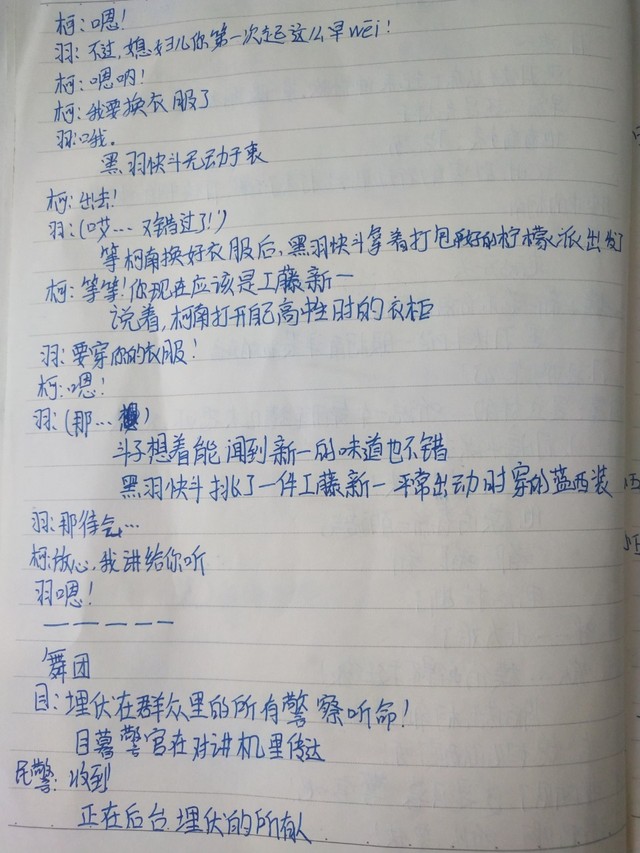 柯:嗯!
羽:不过,媳妇儿你第一次起这么早wei!
柯:嗯呐!
柯:我要换衣服了
羽:哦。
黑羽快斗无动于衷
柯:出去!
羽:(哎…又错过了!)
等柯南换好衣服后,黑羽快斗拿着打包好的柠檬派出发了
柯:等等!你现在应该是工藤新一
说着,柯南打开自己高中时的衣柜
羽:要穿你的衣服!
柯:嗯!
羽:(那…)
斗子想着能闻到新一的味道也不错
黑羽快斗挑了一件工藤新一平常出动时穿的蓝西装
羽:那待会…
柯:放心,我讲给你听
羽:嗯!
—————
舞团
目:埋伏在群众里的所有警察听命!
目暮警官在对讲机里传达
民警:收到
正在后台埋伏的所有人